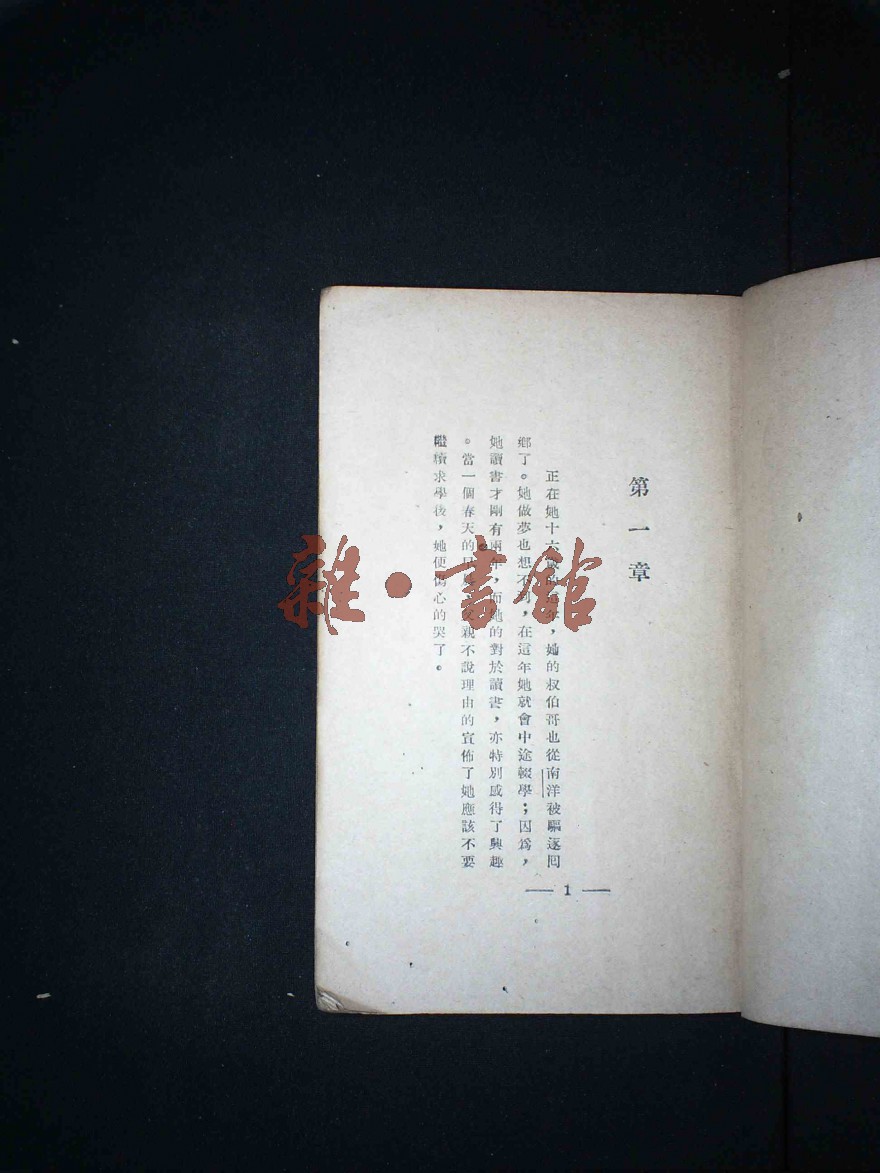 第一章
正在她十六歲的這年，她的叔伯哥也從南洋被驅逐囘
鄉了。她做夢也想不到，在這年她就會中途輟學；因爲，
她讀書才剛有兩年，而她的對於讀書，亦特別感得了興趣
。當一個春天的日父親不說理由的宣佈了她應該不要
繼續求學後，她便傷心的哭了。
— 1 —
雜·書館